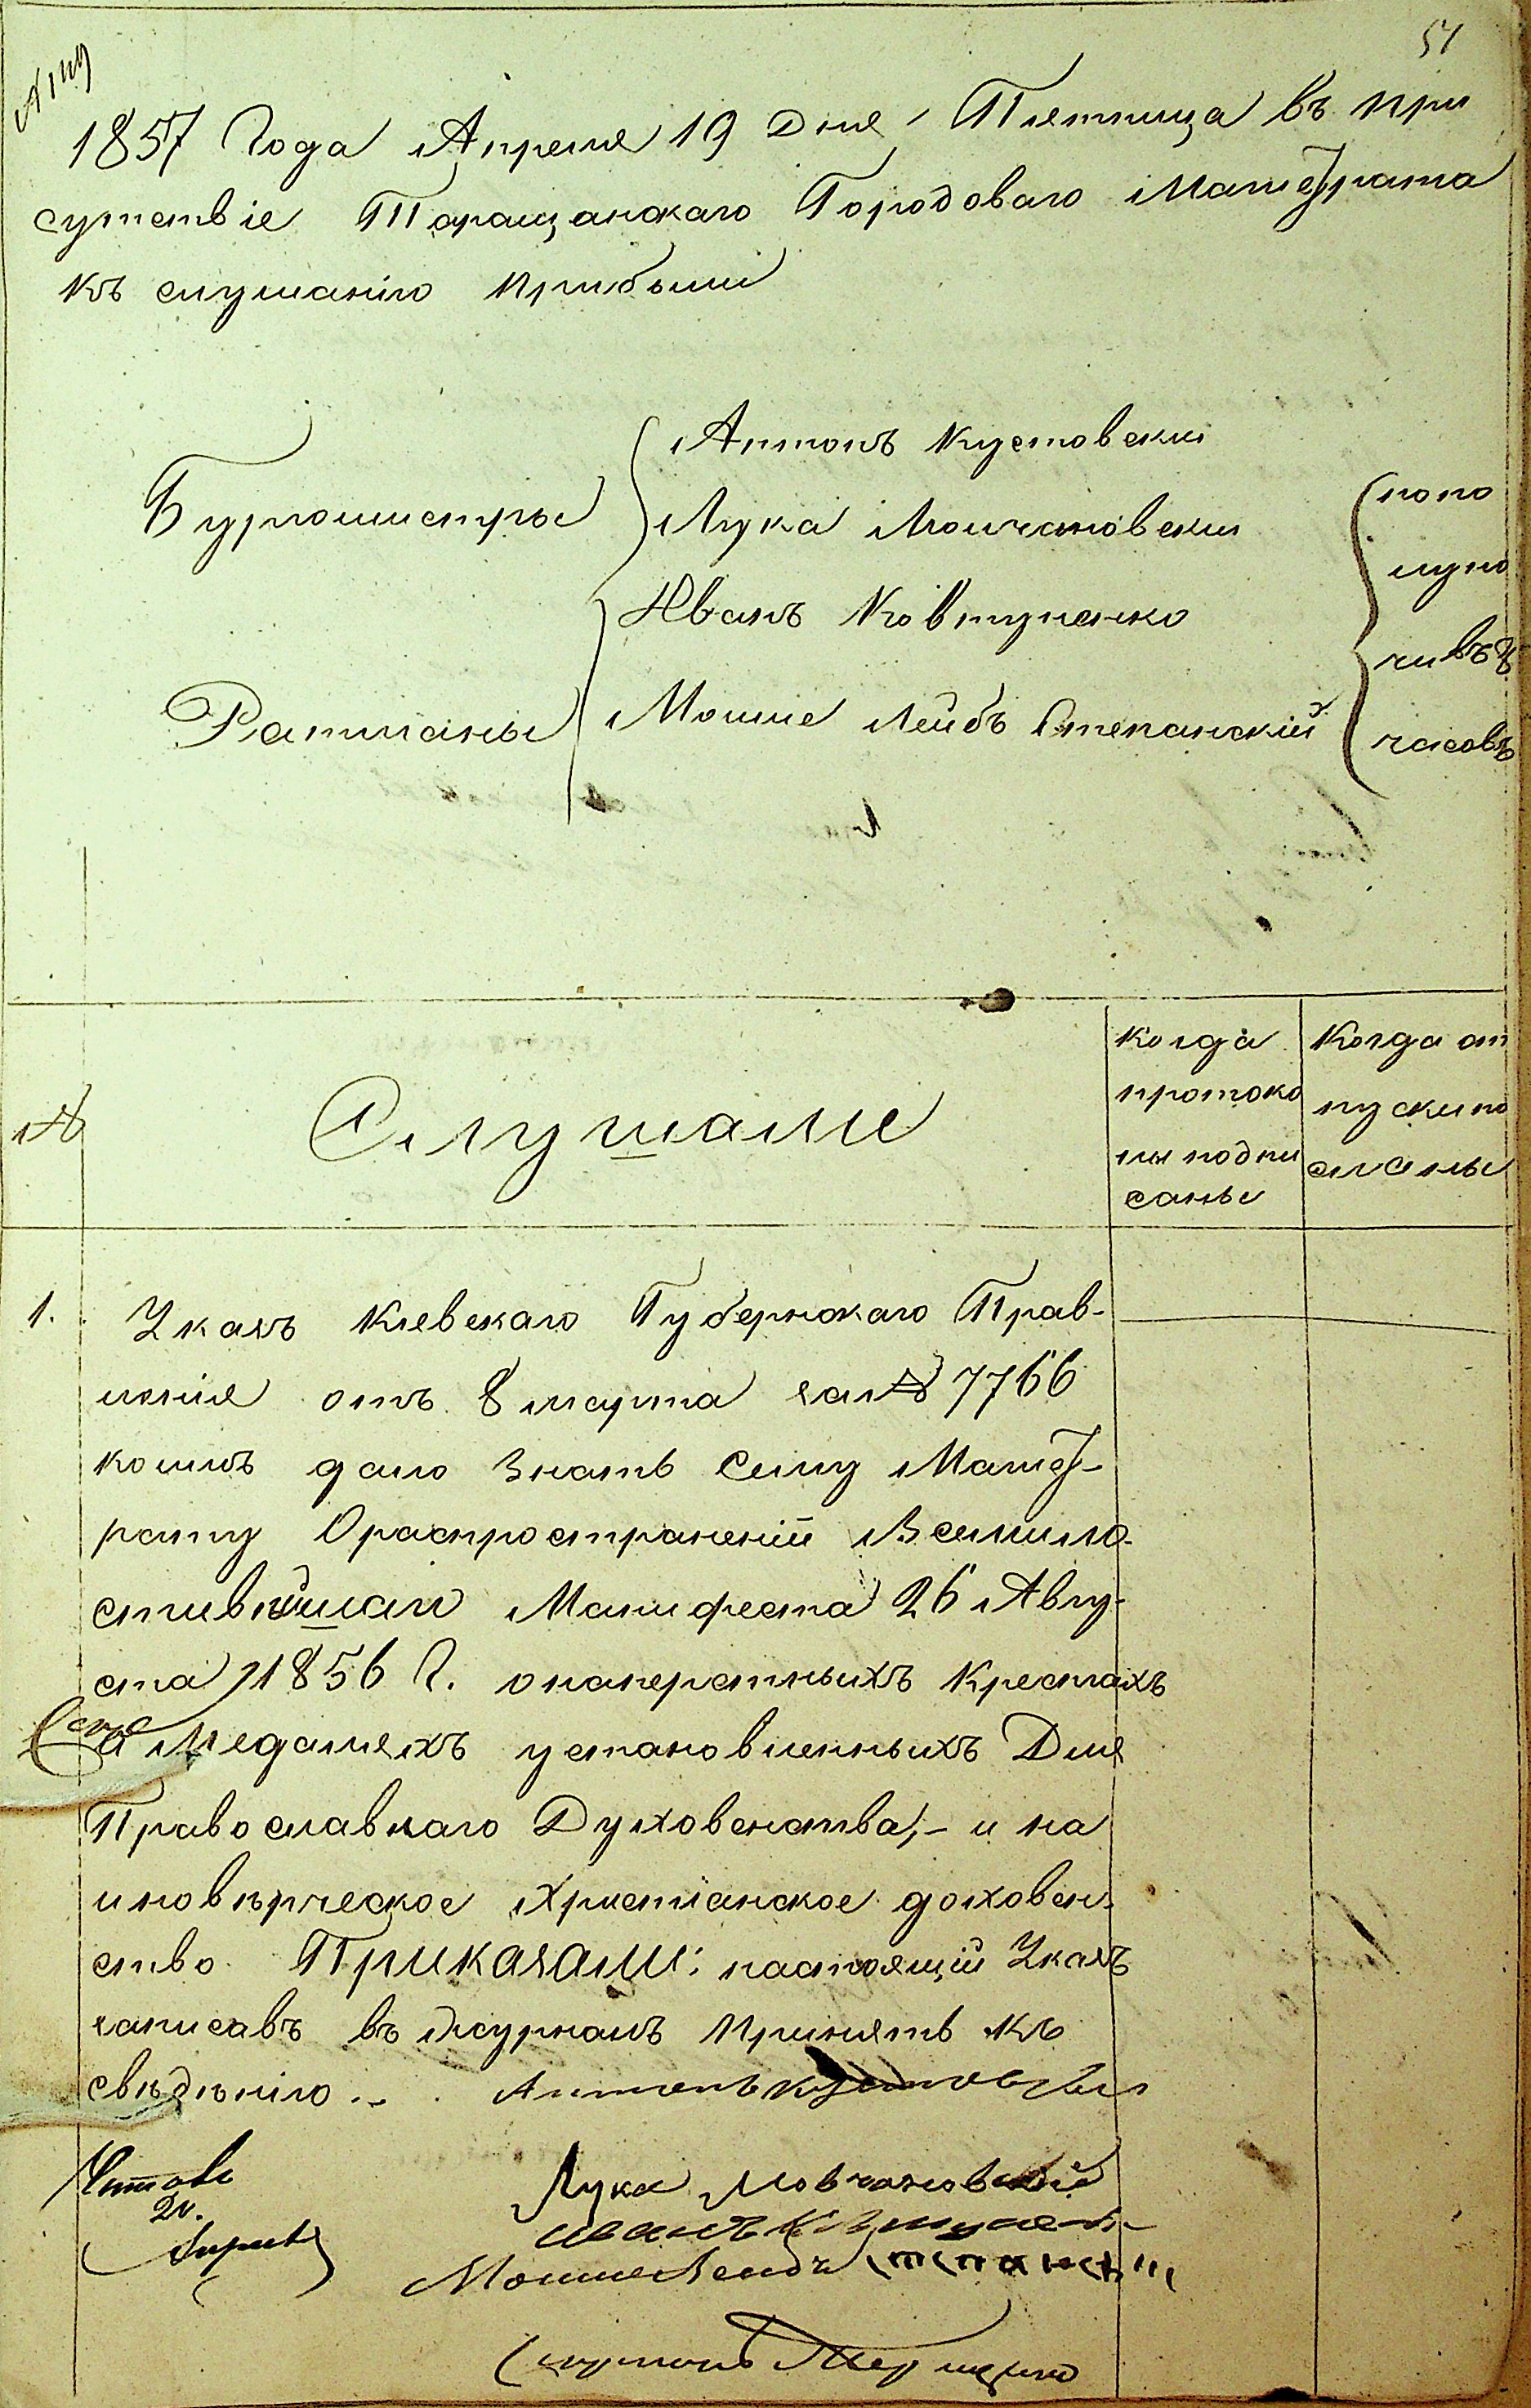 51
1857 Года Апреля 19 Дня, Пятница въ при
сутствіе Таращанскаго Городоваго Магистрата
къ слушанію прибыли
Бургомистры
Антонъ Кустовски
Лука Молчановски
Ратманы
Иванъ Ковтуненко
Мошие Лейбъ Степанскій
попо
луно
чивъ 8
часовъ
№
Слушали
Когда
протоко
лы подпи
саны
Когда от
пуски по
сланы
1. Указъ Киевскаго Губернскаго Прав-
ленія отъ 8 марта за № 7766
коимъ дало знать Сему Магист-
рату О распространеніи Всемило-
стивѣйшаго Манифеста 26 Авгу-
ста 1856 г. о наперстныхъ Крестахъ
и Медаляхъ установленныхъ Для
Православнаго Духовенства,- и на
иновѣрческое Христіанское духовен-
ство. Приказали: настоящій Указъ
записавъ въ журналъ принять къ
свѣдѣнію.. Антонъ Кустовски
Лука Мовчановскій
Иванъ Ковтуненко
Мошие Лейбъ Степанскій